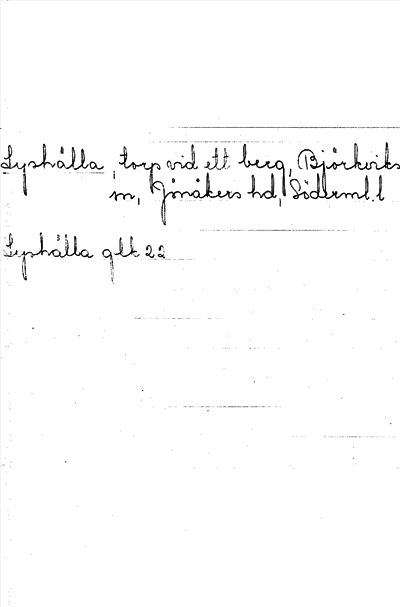 Lyshälla, torp vid ett berg, Björkviks
sn, Jönåkers hd, Söderml. l
Lyshälla glk 22